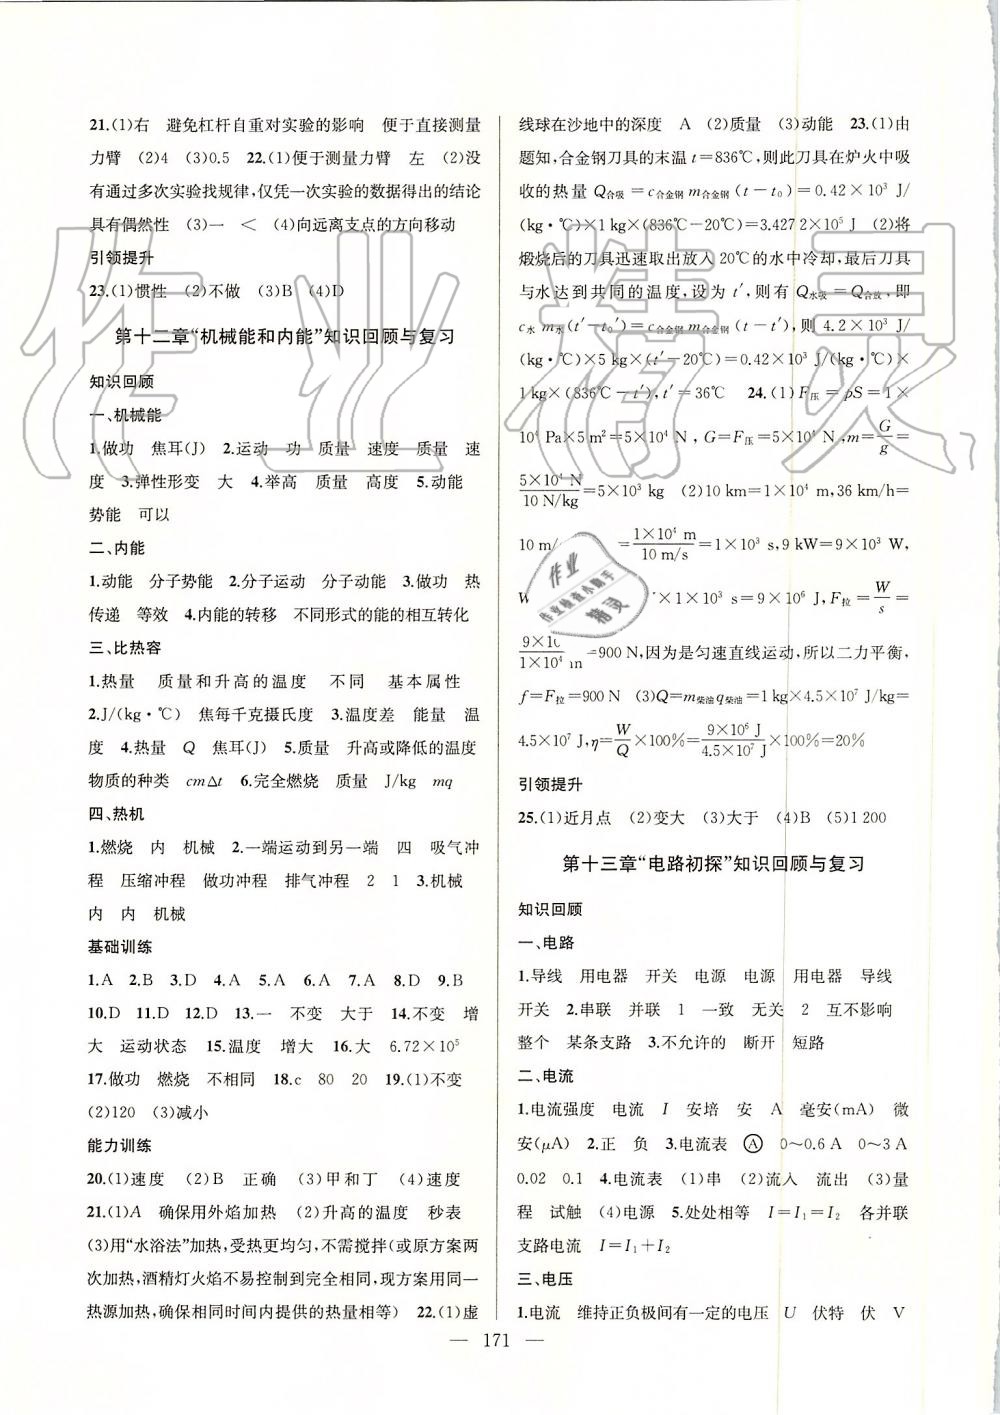 21.(1)右 避免杠杆自重对实验的影响 便于直接测量
力臂 (2)4 (3)0.5 22.(1)便于测量力臂 左 (2)没
有通过多次实验找规律,仅凭一次实验的数据得出的结论
具有偶然性 (3)一 < (4)向远离支点的方向移动
引领提升
23.(1)惯性 (2)不做 (3)B (4)D
第十二章“机械能和内能”知识回顾与复习
知识回顾
一、机械能
1.做功 焦耳(J) 2.运动 功 质量 速度 质量 速
度 3.弹性形变 大 4.举高 质量 高度 5.动能
势能 可以
二、内能
1.动能 分子势能 2.分子运动 分子动能 3.做功 热
传递 等效 4.内能的转移 不同形式的能的相互转化
三、比热容
1.热量 质量和升高的温度 不同 基本属性
2.J/(kg·℃) 焦每千克摄氏度 3.温度差 能量 温
度 4.热量 Q 焦耳(J) 5.质量 升高或降低的温度
物质的种类 cmΔt 6.完全燃烧 质量 J/kg mq
四、热机
1.燃烧 内 机械 2.一端运动到另一端 四 吸气冲
程 压缩冲程 做功冲程 排气冲程 2 1 3.机械
内 内 机械
基础训练
1.A 2.B 3.D 4.A 5.A 6.A 7.A 8.D 9.B
10.D 11.D 12.D 13.一 不变 大于 14.不变 增
大 运动状态 15.温度 增大 16.大 6.72×10⁵
17.做功 燃烧 不相同 18.c 80 20 19.(1)不变
(2)120 (3)减小
能力训练
20.(1)速度 (2)B 正确 (3)甲和丁 (4)速度
21.(1)A 确保用外焰加热 (2)升高的温度 秒表
(3)用“水浴法”加热,受热更均匀,不需搅拌(或原方案两
次加热,酒精灯火焰不易控制到完全相同,现方案用同一
热源加热,确保相同时间内提供的热量相等) 22.(1)虚
线球在沙地中的深度 A (2)质量 (3)动能 23.(1)由
题知,合金钢刀具的末温 t=836℃,则此刀具在炉火中吸
收的热量 Q合吸=c合金钢 m合金钢 (t-t₀)=0.42×10³ J/
(kg·℃)×1 kg×(836℃-20℃)=3.427 2×10⁵ J (2)将
煅烧后的刀具迅速取出放入20℃的水中冷却,最后刀具
与水达到共同的温度,设为 t′,则有 Q水吸=Q合放,即
c水 m水(t′-t₀′)=c合金钢 m合金钢 (t-t′),则 4.2×10³ J/
(kg·℃)×5 kg×(t′-20℃)=0.42×10³ J/(kg·℃)×
1 kg×(836℃-t′),t′=36℃ 24.(1)F压=pS=1×
10⁴ Pa×5 m²=5×10⁴ N ,G=F压=5×10⁴ N,m=G/g=
5×10⁴ N/10 N/kg=5×10³ kg (2)10 km=1×10⁴ m,36 km/h=
10 m/ =1×10⁴ m/10 m/s=1×10³ s,9 kW=9×10³ W,
W ×1×10³ s=9×10⁶ J,F拉=W/s=
9×10 /1×10⁴ m=900 N,因为是匀速直线运动,所以二力平衡,
f=F拉=900 N (3)Q=m柴油q柴油=1 kg×4.5×10⁷ J/kg=
4.5×10⁷ J,η=W/Q×100%=9×10⁶ J/4.5×10⁷ J×100%=20%
引领提升
25.(1)近月点 (2)变大 (3)大于 (4)B (5)1 200
第十三章“电路初探”知识回顾与复习
知识回顾
一、电路
1.导线 用电器 开关 电源 电源 用电器 导线
开关 2.串联 并联 1 一致 无关 2 互不影响
整个 某条支路 3.不允许的 断开 短路
二、电流
1.电流强度 电流 I 安培 安 A 毫安(mA) 微
安(μA) 2.正 负 3.电流表 Ⓐ 0～0.6 A 0～3 A
0.02 0.1 4.电流表 (1)串 (2)流入 流出 (3)量
程 试触 (4)电源 5.处处相等 I=I₁=I₂ 各并联
支路电流 I=I₁+I₂
三、电压
1.电流 维持正负极间有一定的电压 U 伏特 伏 V
— 171 —
作业精灵
作业
作业检查小助手
精灵